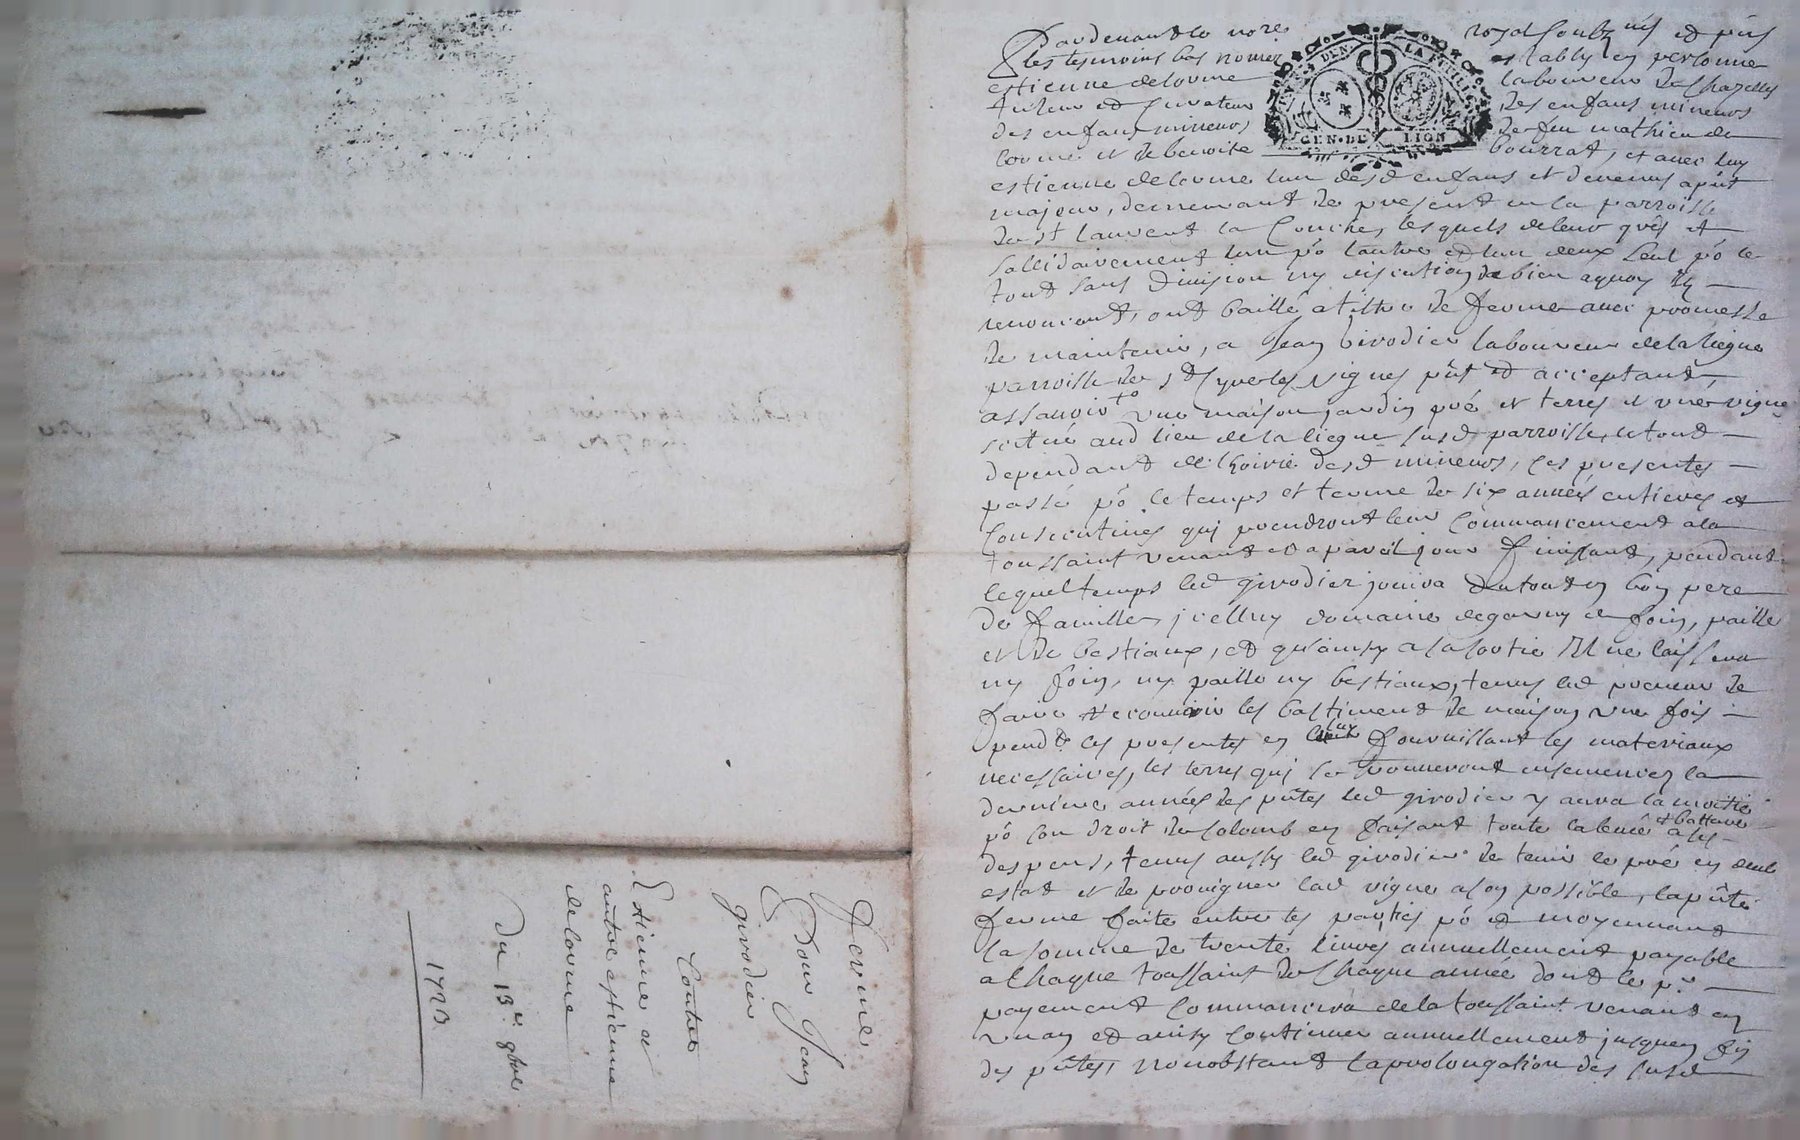 Pardevant le no.re royal soubz.né et pñs
les tesmoins bas només establÿ en personne
estienne delorme laboureur de Chazelles
tuteur et Curateur des enfans mineurs
des enfans mineurs de feu mathieu de
lorme et de benoite bourrat, et avec luy
estienne delorme lun desd enfans et devenus apñt
majeur, demeurant de present en la parroisse
de st laurent la Conche, lesquels de leur grés et
sollidairement lun pô lautre et lun deux seul pô le
tout sans division ny discution de bien aquoy ils
renoncent, ont baillé a tiltre de ferme avec promesse
de maintenir, a Jean Girodier laboureur de la liegue
parroisse de st Cyre les vignes pñt et acceptant,
assavoir une maison jardin pré et terres et une vigne
scitué aud lieu de la liegue susd parroisse, le tout
dependant de lhoirie desd mineurs, ces presentes
passé pô le temps et terme de six années entieres et
Consecutives qui prendront leur Commancement a la
toussaint venant et a pareil jour finissant, pendant
lequel temps led girodier jouira du tout en bon pere
de famille, jcelluy domaine degarny de foin, paille
et de bestiaux, et qu'ainsy a sa sortie Il ne laissera
ny foin, ny paille ny bestiaux, tenus led preneur de
faire recouvrir les bastiment de maison une fois
pend.t les presentes en luy fournissant les materiaux
necessaires, les terres qui se trouveront ensemencez la
derniere années des pñtes led girodier y aura la moitié
pô son droit de Colomb en faisant toute la levée et batture a ses
despens, tenus aussy led girodier de tenir le pré en deub
estat et de provigner lad vigne a son possible, la pñte
ferme faite entre les parties pô et moyennant
la somme de trente livres annuellement payable
a chaque toussaint de chaque année dont le p.r
payement Commancera de la toussaint venant en
un an et ainsy continuer annuellement jusques fin
des pñtes, nonobstant la prolongation des susd
ferme
pour Jean
girodier
Contre
Etienne et
autre estienne
delorme
Du 13.e 9bre
1723